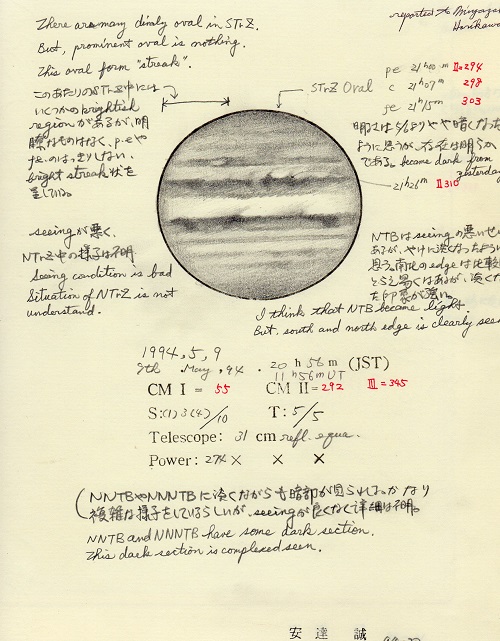 There are many dimly oval in STrZ.
But, prominent oval is nothing.
This oval form "streak".
reported to Miyazaki
Horikawa
このあたりのSTrZ中には
いくつかのbrightish
regionがあるが、明
瞭なものはなく、p.eや
f.e.のはっきりしない、
bright streak状を
呈している。
STrZ Oval
pe 21h00m II=294
c 21h07m 298
fe 21h15m 303
明るさは5/8よりやや暗くなった
ように思うが、
である。became dark from
yesterday
21h26m II310
seeingが悪く、
NTrZ中の様子は不明
Seeing condition is bad
Situation of NTrZ is not
understand.
NTBはseeingの悪いせい
あるが、やけに淡くなったように
思う。南北のedgeは比較的
とらえ易くはあるが、淡くな
た印象が強い。
I think that NTB became light.
But, south and north edge is clearly see
1994, 5, 9
9th . May , 94 . 20 h 56 m (JST)
11h56m UT
CM I = 55 CM II = 292 III = 345
S:(1)3(4)/10 T: 5/5
Telescope: 31 cm refl. equa.
Power: 274 × × ×
(NNTBやNNNTBに淡くながらも暗部が見られ、かなり
複雑な様子をしているらしいが、seeingが良くなく詳細は不明。
NNTB and NNNTB have some dark section.
This dark section is complexed seen.
安達 誠